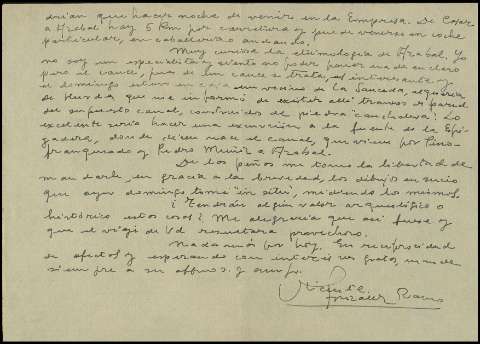 drían que hacer noche de venir en la Empresa. De Casar
a Azabal hay 5 Km por carretera y puede venirse en coche
particular, en caballería o andando.
Muy curiosa la etimología de Azabal. Yo
no soy un especialista y siento no poder poner nada en claro
pero el cauce, pues de un cauce se trata, es interesante y
el domingo estuvo en casa un vecino de La Sauceda, alquería
de que me informó de existir allí trozos de pared
del supuesto canal, construidos de piedra "cancholera". Lo
excelente sería hacer una excursión a la fuente de la
donde dicen nace el canal, que viene por Pino-
franqueado y Pedro Muñoz a Azabal.
De los peños me tomo la libertad de
mandarle en gracia a la brevedad, los dibujos en sucio
que ayer domingo tomé "in situ", midiendo lo mismo.
¿Tendrán algún valor arqueológico o
histórico estas cosas? Me alegraría que así fuese y
que el viaje de Vd resultara provechoso.
Nada más por hoy. En reciprocidad
de afectos y esperando con interés sus gratas, mande
siempre a su affmo. y amigo.
Vicente
González Ramos